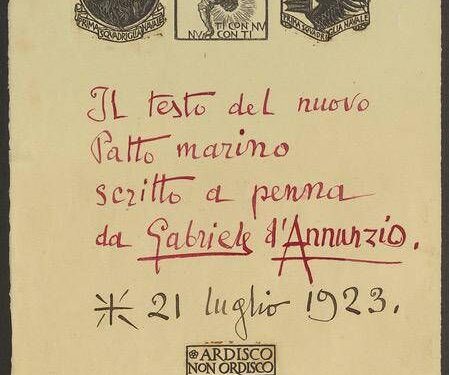 PRIMA SQUADRIGLIA NAVALE
TI CON NV
NV CON TI
PRIMA SQUADRIGLIA NAVALE
Il testo del nuovo
Patto marino
scritto a penna
da Gabriele d'Annunzio.
21 luglio 1923.
ARDISCO
NON ORDISCO